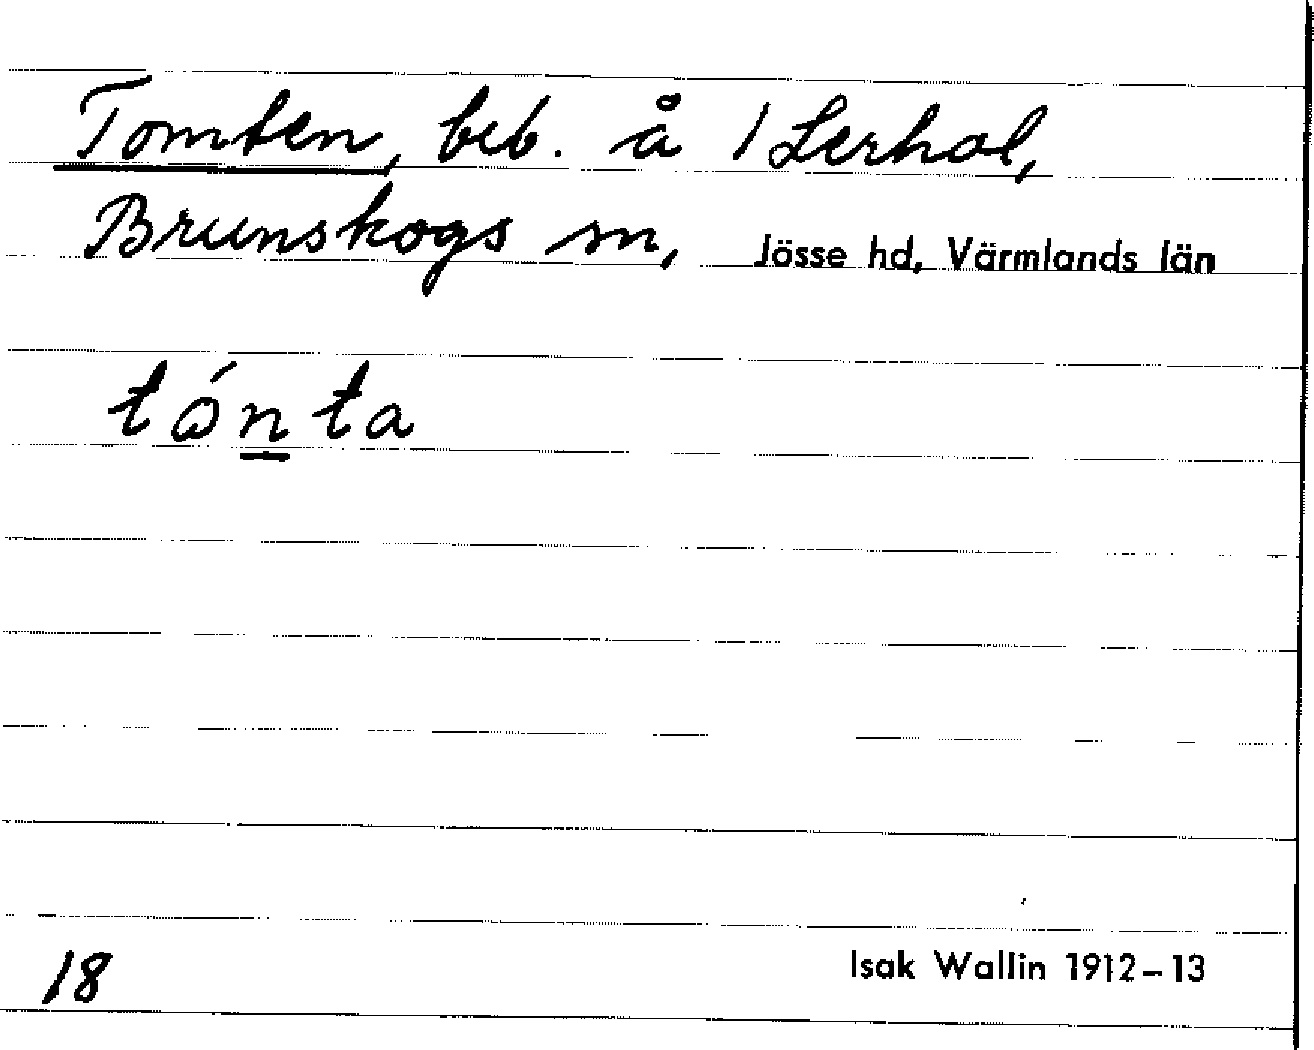 Tomten, beb. å 1 Lerhol,
Brunskogs sn, Jösse hd, Värmlands län
tónta
18
Isak Wallin 1912-13